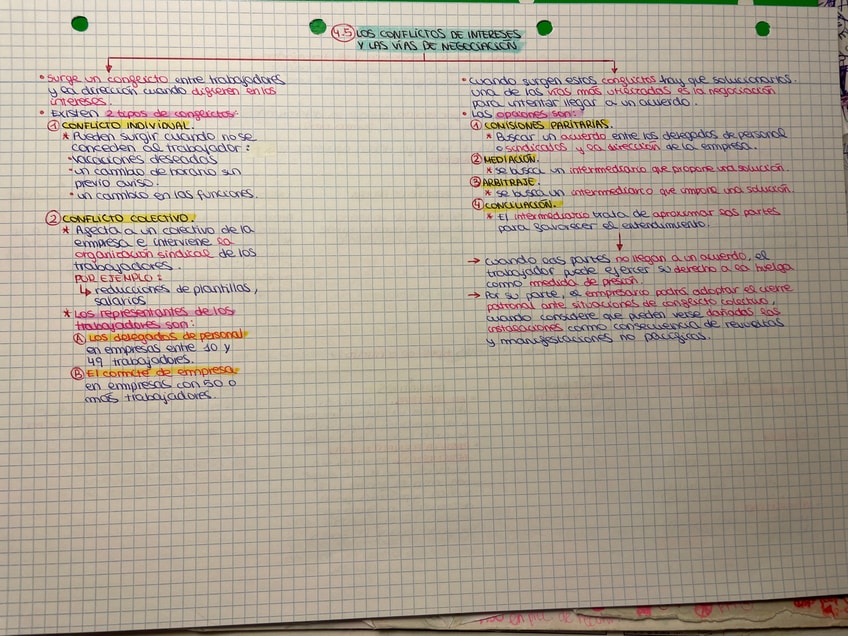 4.5 LOS CONFLICTOS DE INTERESES
Y LAS VÍAS DE NEGOCIACIÓN
• Surge un conflicto entre trabajadores
y la dirección cuando difieren en los
intereses.
• Existen 2 tipos de conflictos:
1 CONFLICTO INDIVIDUAL.
* Pueden surgir cuando no se
conceden al trabajador:
• vacaciones deseadas
• un cambio de horario sin
previo aviso.
• un cambio en las funciones.
2 CONFLICTO COLECTIVO.
* Afecta a un colectivo de la
empresa e interviene la
organización sindical de los
trabajadores.
POR EJEMPLO:
↳ reducciones de plantillas,
salarios
* Los representantes de los
trabajadores son:
A Los delegados de personal
en empresas entre 10 y
49 trabajadores.
B El comité de empresa
en empresas con 50 o
más trabajadores.
• Cuando surgen estos conflictos hay que solucionarlos.
una de las vías más utilizadas es la negociación
para intentar llegar a un acuerdo.
• Las opciones son:
1 COMISIONES PARITARIAS.
* Buscar un acuerdo entre los delegados de personal
o sindicatos y la dirección de la empresa.
2 MEDIACIÓN.
* se busca un intermediario que propone una solución.
3 ARBITRAJE.
* se busca un intermediario que impone una solución.
4 CONCILIACIÓN.
* El intermediario trata de aproximar las partes
para favorecer el entendimiento.
→ Cuando las partes no llegan a un acuerdo, el
trabajador puede ejercer su derecho a la huelga
como medida de presión.
→ Por su parte, el empresario podrá adoptar el cierre
patronal ante situaciones de conflicto colectivo,
cuando considere que pueden verse dañadas las
instalaciones como consecuencia de revueltas
y manifestaciones no pacíficas.